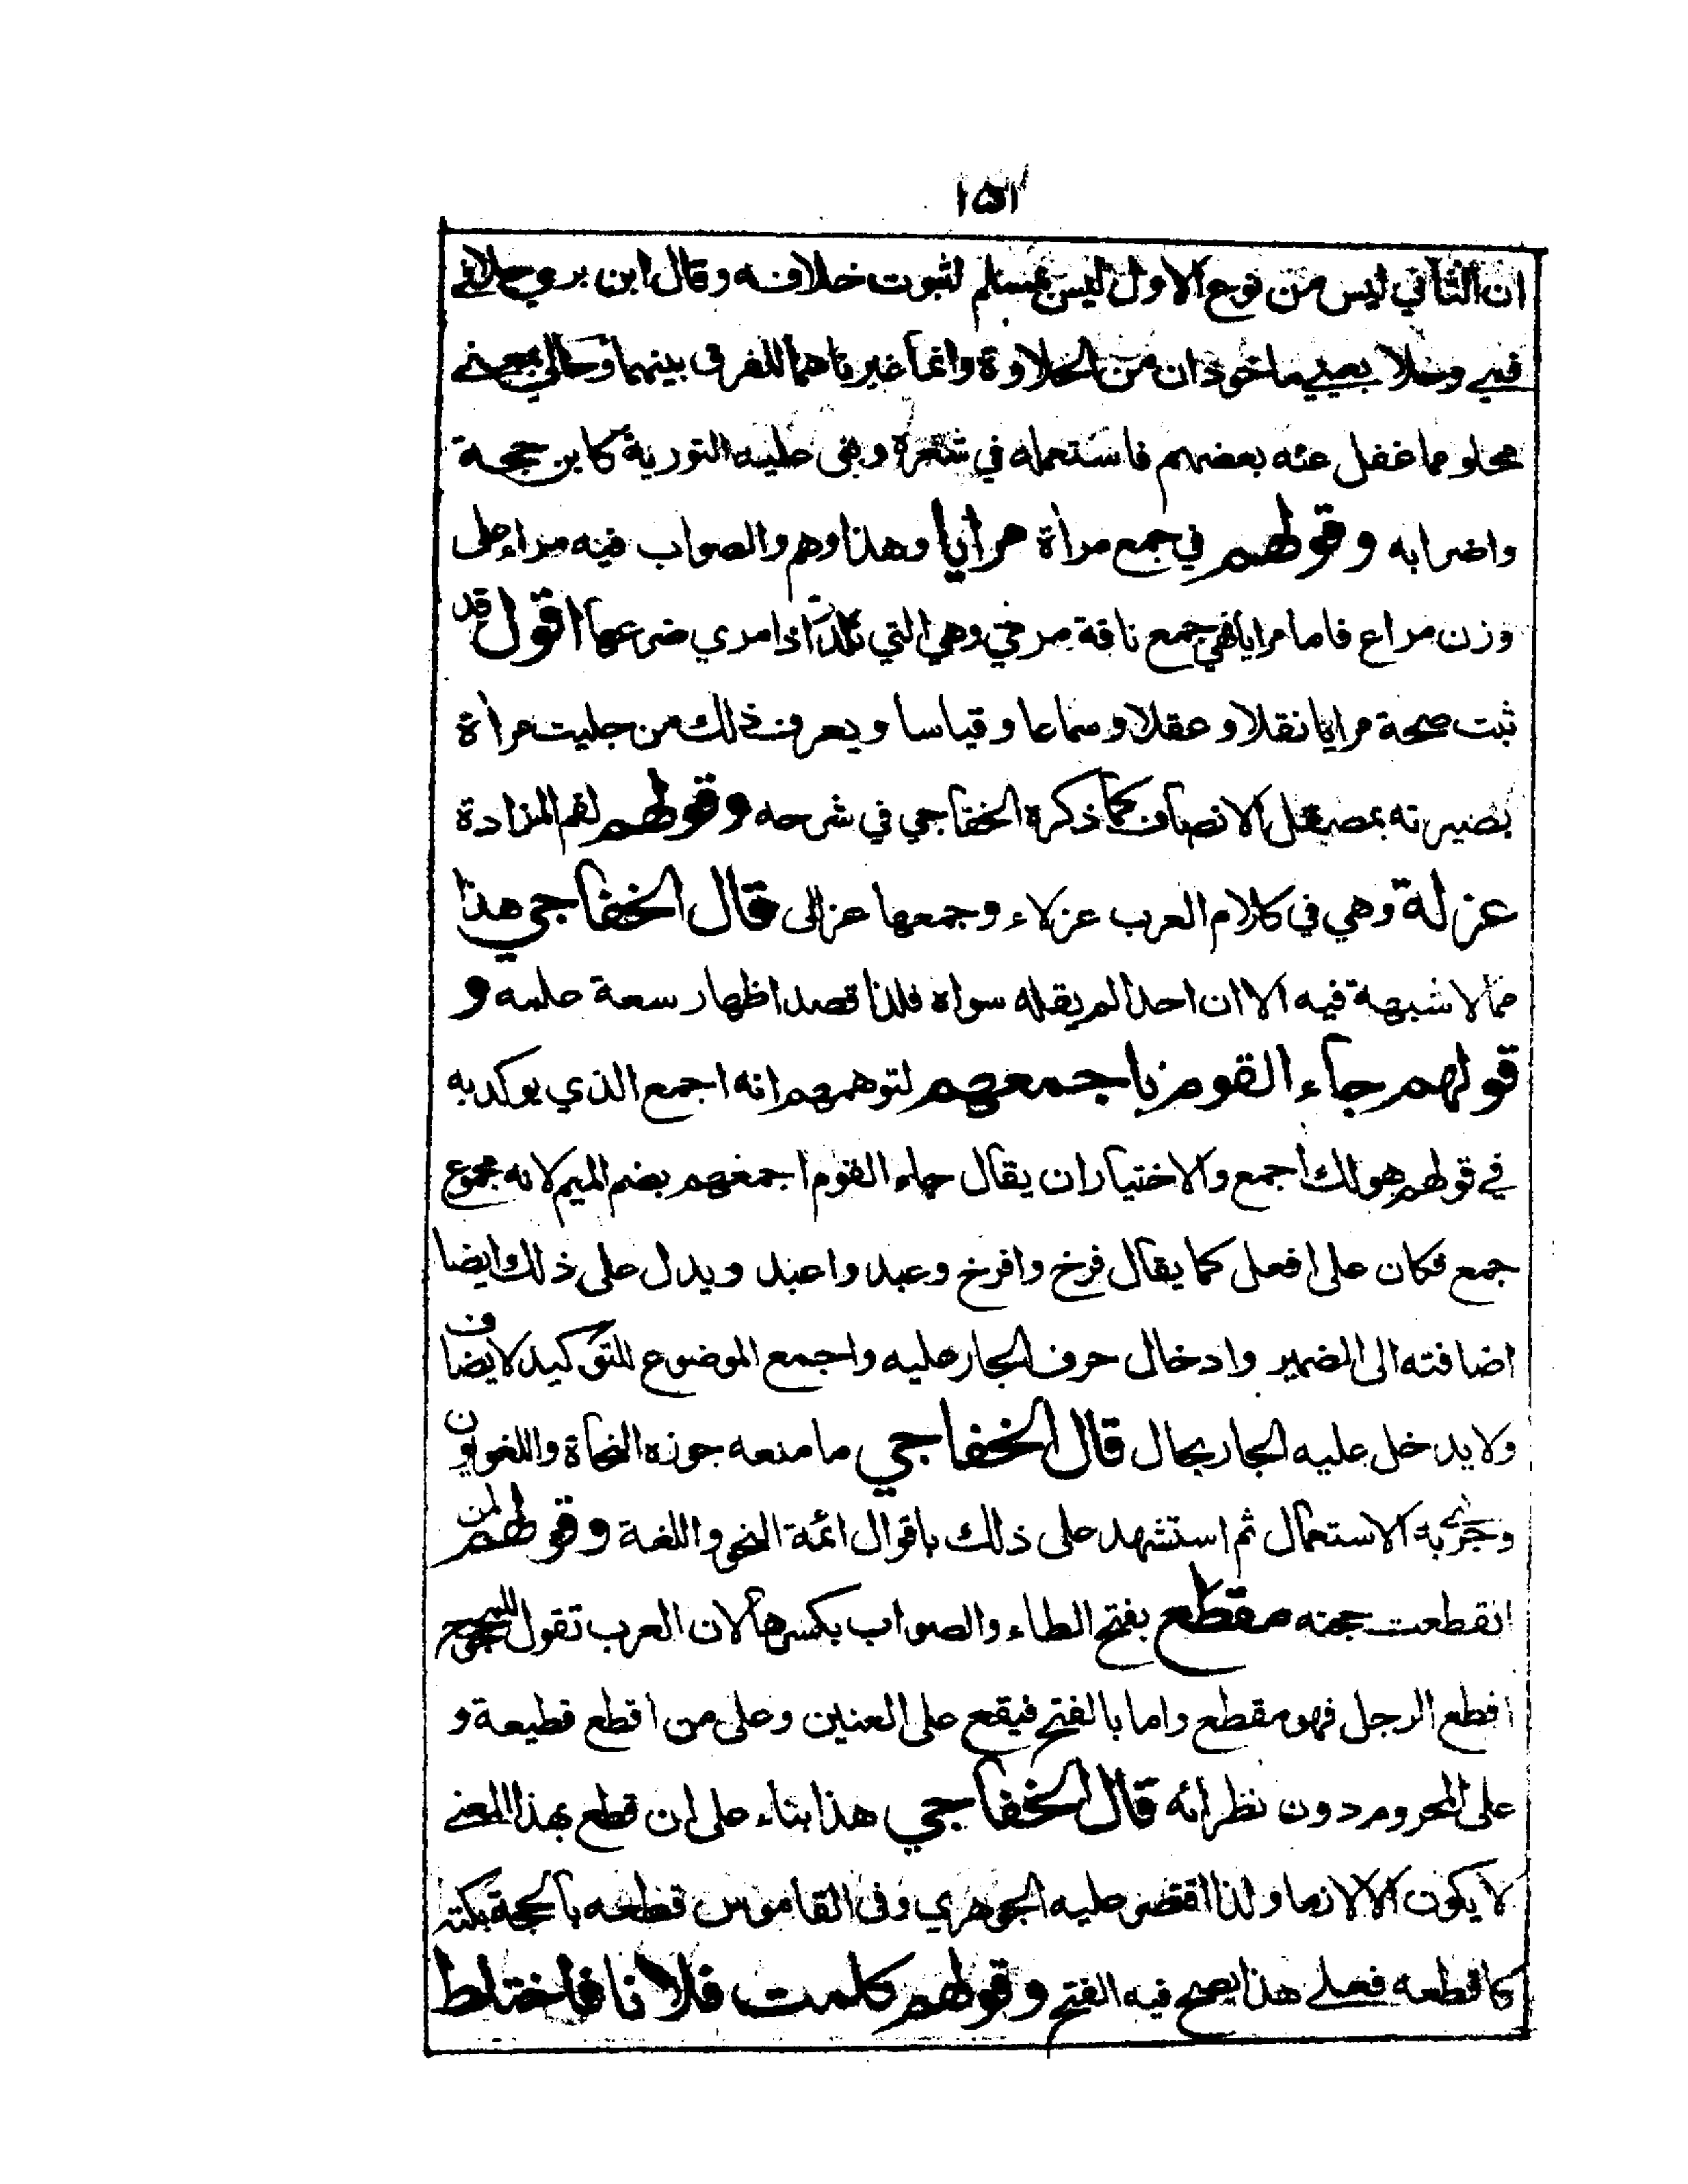 ١٥١
ان الثاني ليس من نوع الاول ليس بمسلم لثبوت خلافه وقال ابن بري حلا في
فمي وحلا بعيني ماخوذان من الحلاوة وانما غير بناهما للفرق بينهما وحالي بمعنى
محلو مما غفل عنه بعضهم فاستعمله في شعره وبنى عليه التورية كابن حجة
واضرابه وقولهم في جمع مرأة مرايا وهذا وهم والصواب فيه مراء على
وزن مراع فاما مرايا فهي جمع ناقة مري وهي التي تدر اذا مري ضرعها اقول قد
ثبت صحة مرايا نقلا وعقلا وسماعا وقياسا ويعرف ذلك من جليت مرأة
بصيرته بمصقل الانصاف كما ذكره الخفاجي في شرحه وقولهم لفم المزادة
عزلة وهي في كلام العرب عزلاء وجمعها عزالى قال الخفاجي هذا
مما لا شبهة فيه الا ان احدا لم يقله سواه فلذا قصد اظهار سعة علمه و
قولهم جاء القوم باجمعهم لتوهمهم انه اجمع الذي يوكد به
في قولهم هو لك اجمع والاختيار ان يقال جاء القوم اجمعهم بضم الميم لانه مجموع
جمع فكان على افعل كما يقال فرخ وافرخ وعبد واعبد ويدل على ذلك ايضا
اضافته الى الضمير وادخال حرف الجار عليه واجمع الموضوع للتوكيد لا يضاف
ولا يدخل عليه الجار بحال قال الخفاجي ما منعه جوزه النحاة واللغويون
وجرى به الاستعمال ثم استشهد على ذلك باقوال ائمة النحو واللغة وقولهم لمن
انقطعت حجته مقطع بفتح الطاء والصواب بكسرها لان العرب تقول للمحجوج
اقطع الرجل فهو مقطع واما بالفتح فيقع على العنين وعلى من اقطع قطيعة و
على المحروم دون نظرائه قال الخفاجي هذا بناء على ان قطع بهذا المعنى
لا يكون الا لازما ولذا اقتصر عليه الجوهري وفى القاموس قطعه بالحجة بكته
كاقطعه فعلى هذا يصح فيه الفتح وقولهم كلمت فلانا فاختلط